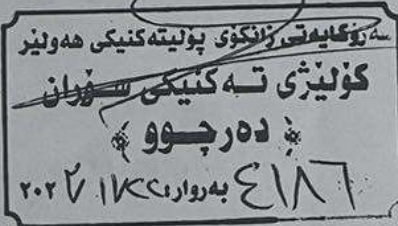 سەرۆکایەتی زانکۆی پۆلیتەکنیکی هەولێر
کۆلێژی تەکنیکی سۆران
﴿ دەرچوو ﴾
٤١٨٦ بەروار